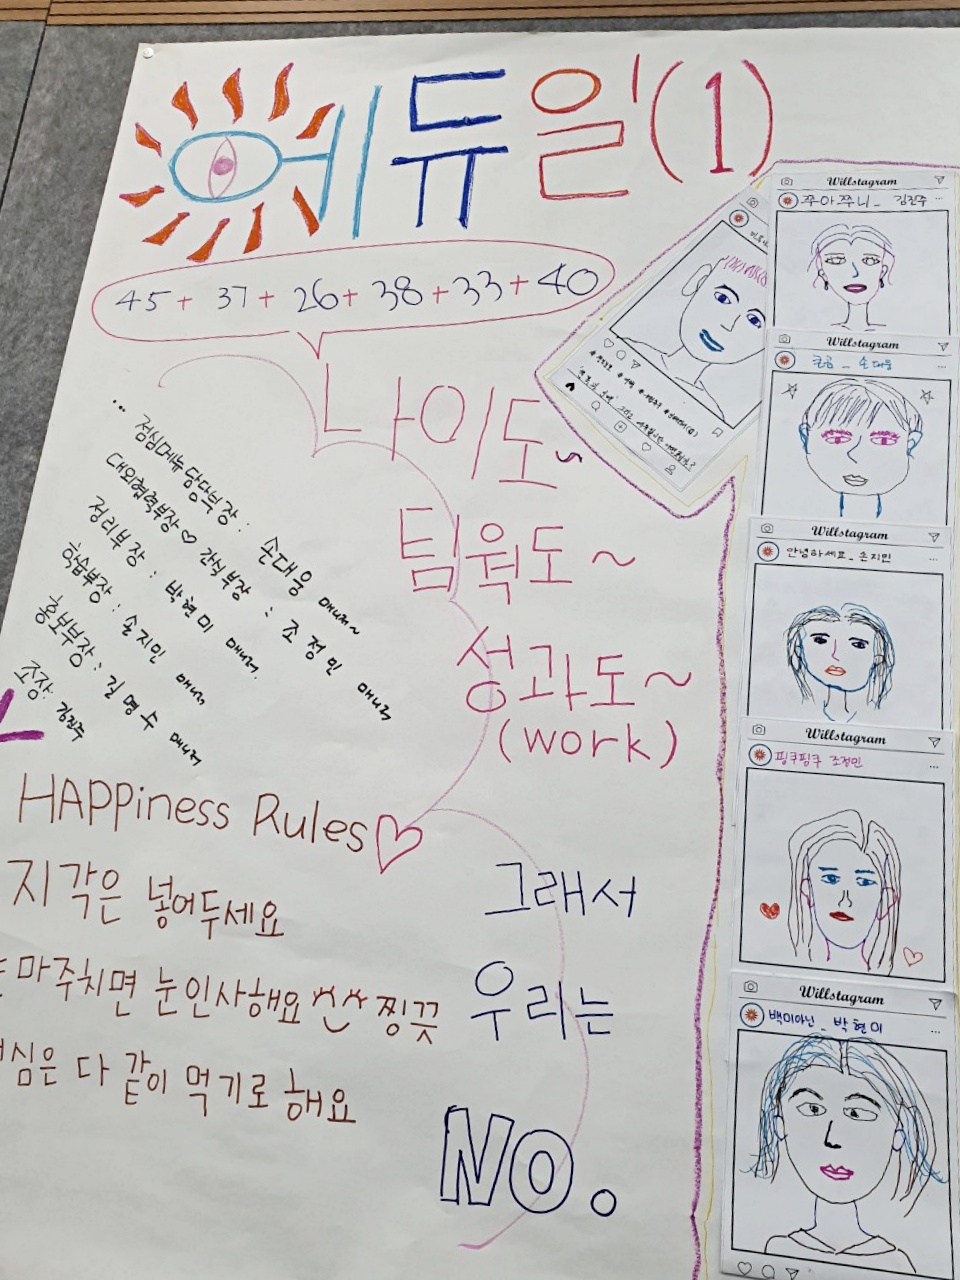 에듀윌(1)
45+ 37+ 26+ 38+33+40
나이도~
팀웍도~
성과도~
(work)
...
점심메뉴담당부장: 손대웅 매니저~
대외협력부장♡ 간식부장: 조정민 매니저
정리부장: 박현미 매니저.
학습부장: 손지민 매니저
홍보부장: 길명수 매니저
조장: 김진주
HAPPiness Rules♡
지각은 넣어두세요
마주치면 눈인사해요 찡끗
심은 다 같이 먹기로 해요
그래서
우리는
NO.
Willstagram
쭈아쭈니_ 김진주 ...
Willstagram
큰곰_ 손대웅 ...
Willstagram
안녕하세요_ 손지민 ...
Willstagram
핑쿠핑쿠 조정민 ...
Willstagram
백미아닌_ 박현미 ...